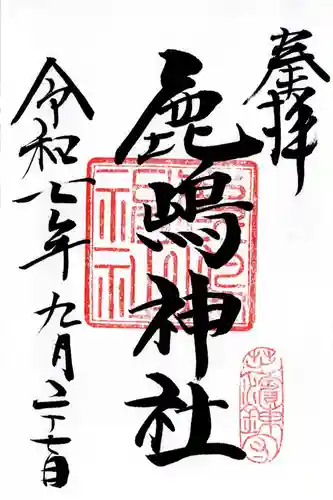 奉拝
鹿嶋神社
令和七年九月二十七日